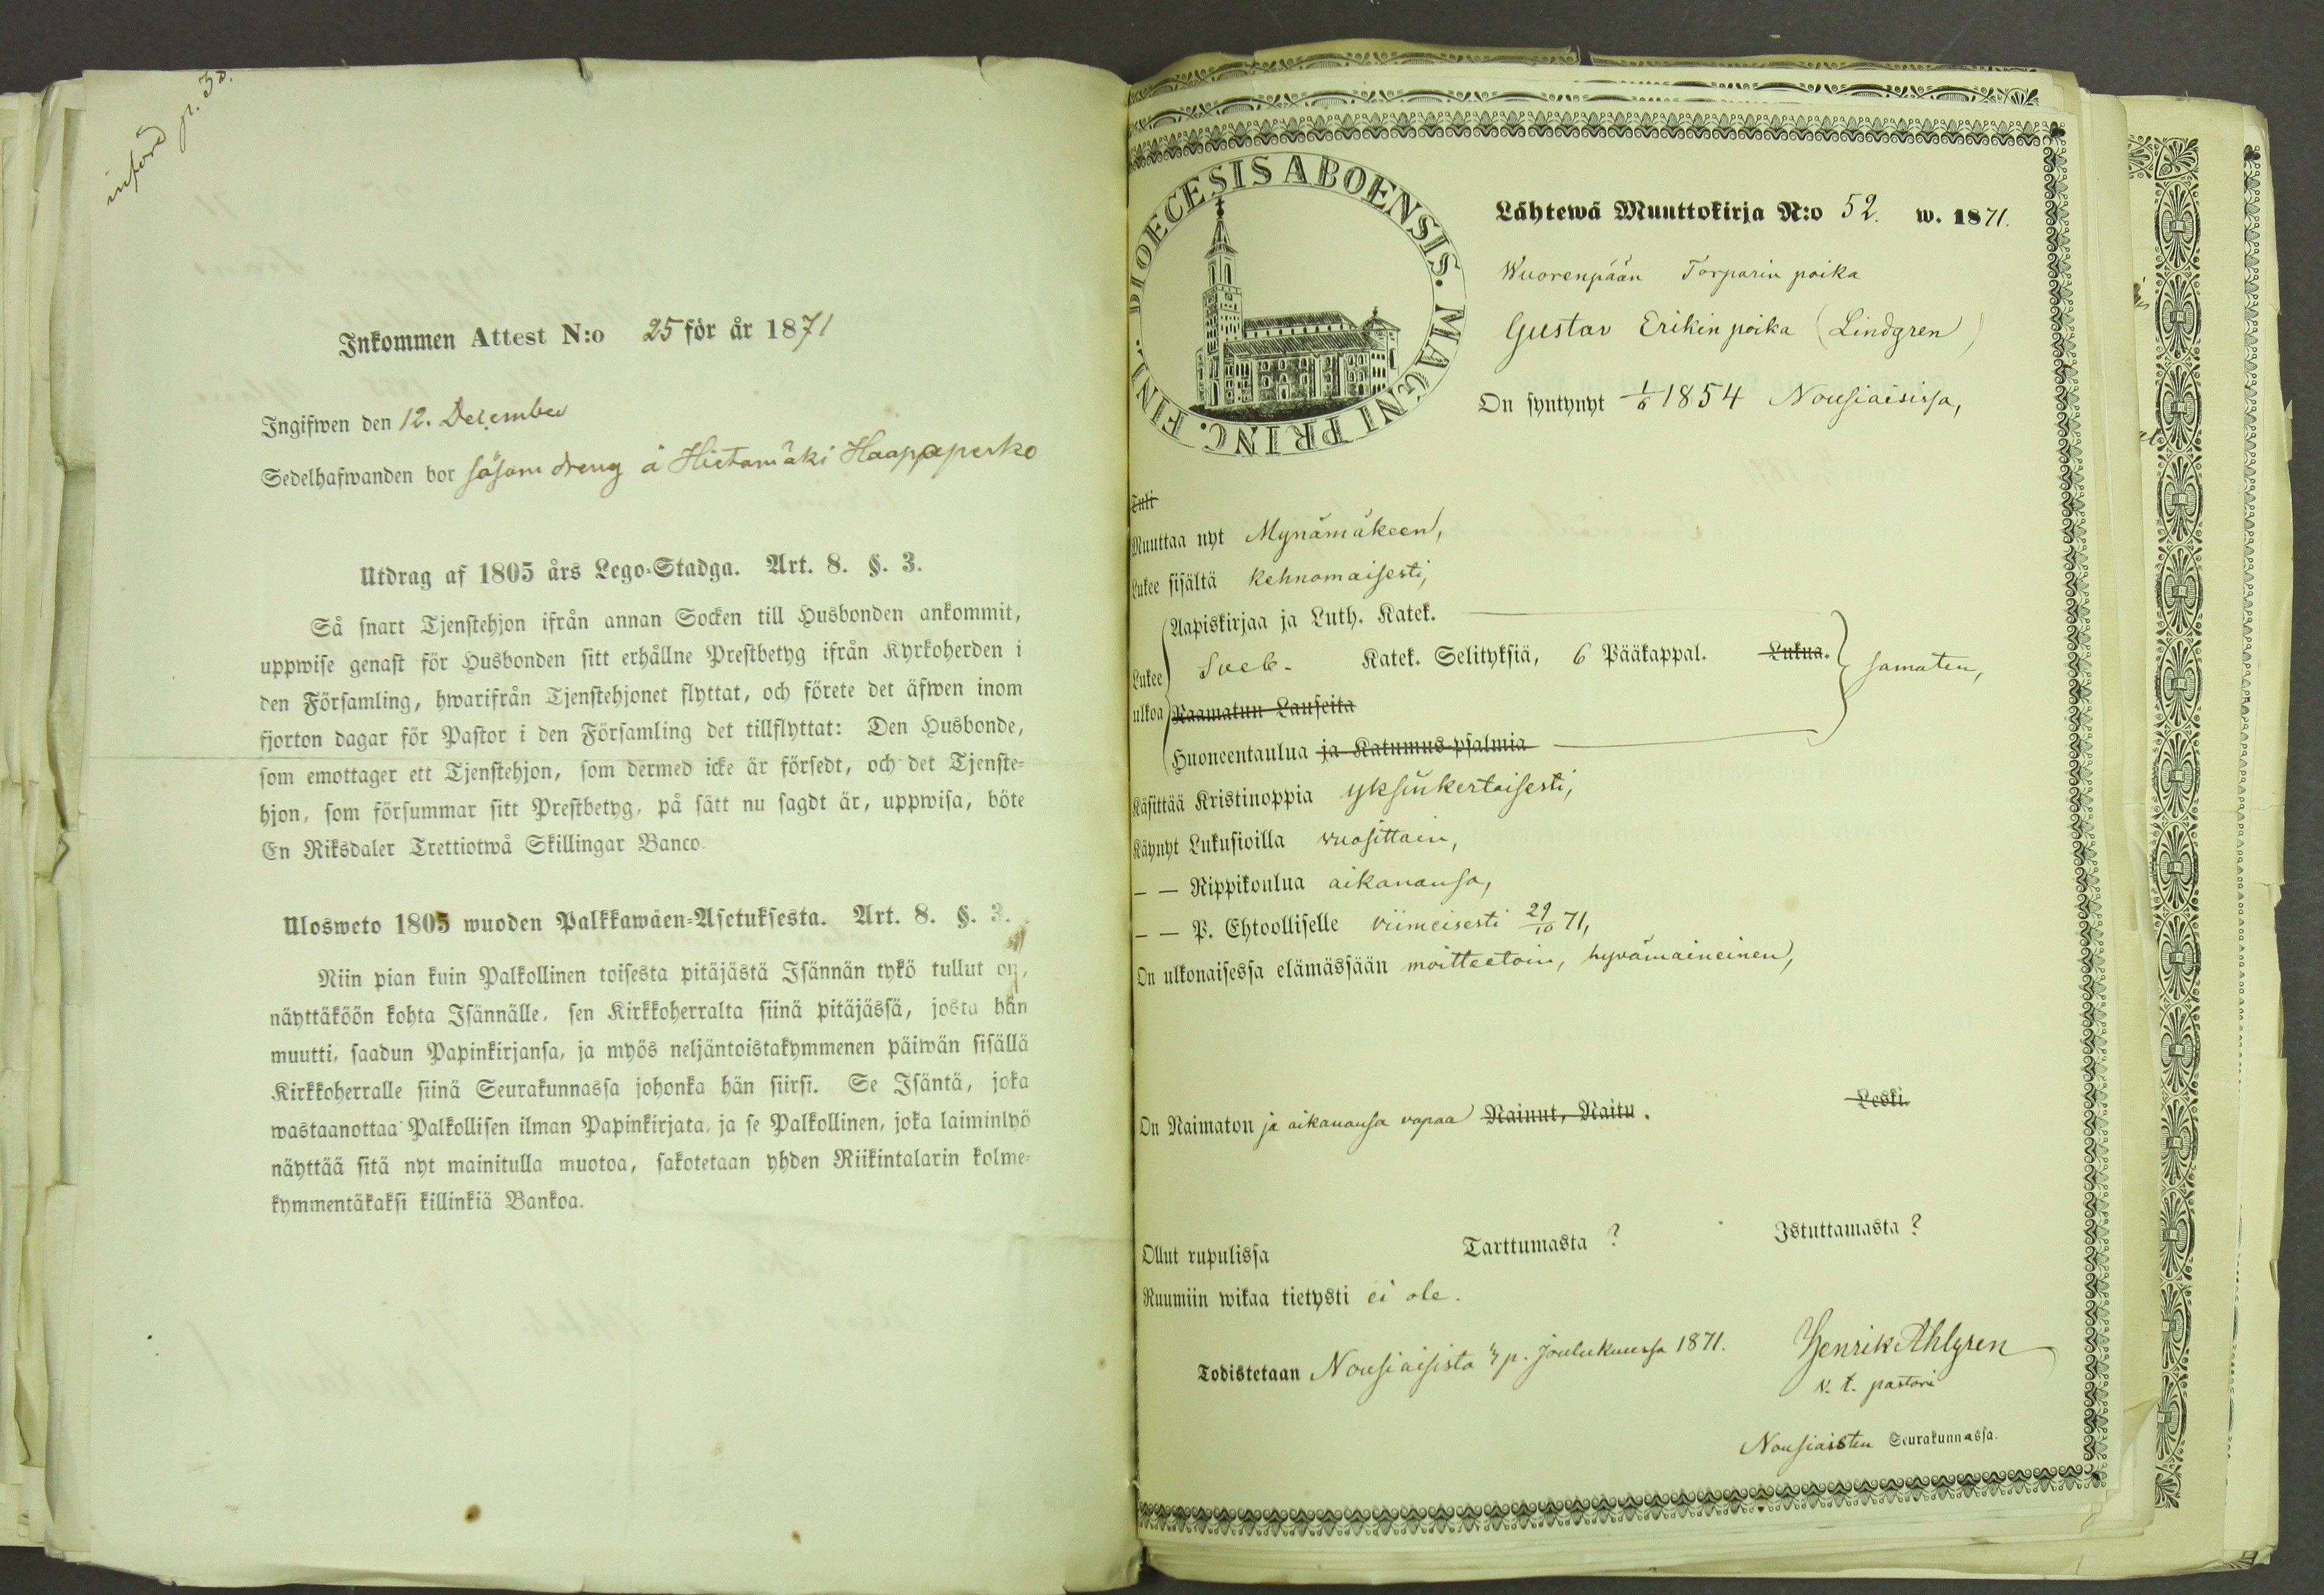 införd p. 30.
Inkommen Attest N:o 25 för år 1871
Ingifwen den 12. December
Sedelhafwanden bor såsom dreng å Hietamäki Haapaperko
Utdrag af 1805 års Lego-Stadga. Art. 8. §. 3.
Så snart Tjenstehjon ifrån annan Socken till Husbonden ankommit,
uppwise genast för Husbonden sitt erhållne Prestbetyg ifrån Kyrkoherden i
den Församling, hwarifrån Tjenstehjonet flyttat, och förete det äfwen inom
fjorton dagar för Pastor i den Församling det tillflyttat: Den Husbonde,
som emottager ett Tjenstehjon, som dermed icke är försedt, och det Tjenste-
hjon, som försummar sitt Prestbetyg, på sätt nu sagdt är, uppwisa, böte
En Riksdaler Trettiotwå Skillingar Banco.
Ulosweto 1805 wuoden Palkkawäen-Asetuksesta. Art. 8. §. 3.
Niin pian kuin Palkollinen toisesta pitäjästä Isännän tykö tullut on,
näyttäköön kohta Isännälle, sen Kirkkoherralta siinä pitäjässä, josta hän
muutti, saadun Papinkirjansa, ja myös neljäntoistakymmenen päiwän sisällä
Kirkkoherralle siinä Seurakunnassa johonka hän siirsi. Se Isäntä, joka
wastaanottaa Palkollisen ilman Papinkirjata, ja se Palkollinen, joka laiminlyö
näyttää sitä nyt mainitulla muotoa, sakotetaan yhden Riikintalarin kolme-
kymmentäkaksi killinkiä Bankoa.
DIOECESIS ABOENSIS. MAGNI PRINC. FINL.
Lähtewä Muuttokirja N:o 52. w. 1871.
Wuorenpään Torparin poika
Gustav Erikin poika (Lindgren)
On syntynyt 1/6 1854 Nousiaisissa,
Tuli
Muuttaa nyt Mynämäkeen,
Lukee sisältä kehnomaisesti,
Aapiskirjaa ja Luth. Katek.
Lukee Sveb. Katek. Selityksiä, 6 Pääkappal. Lukua. samaten,
ulkoa Raamatun Lauseita
Huoneentaulua ja Katumus-psalmia
Käsittää Kristinoppia yksinkertaisesti,
Käynyt Lukusioilla vuosittain,
— — Rippikoulua aikanansa,
— — P. Ehtoolliselle viimeisesti 29/10 71,
On ulkonaisessa elämässään moitteetoin, hyvämaineinen,
On Naimaton ja aikanansa vapaa Nainut, Naitu. Leski.
Ollut rupulissa Tarttumasta? Istuttamasta?
Ruumiin wikaa tietysti ei ole.
Todistetaan Nousiaisista p. Joulukuussa 1871. Henrik Ahlgren
v. t. pastori
Nousiaisten Seurakunnassa.